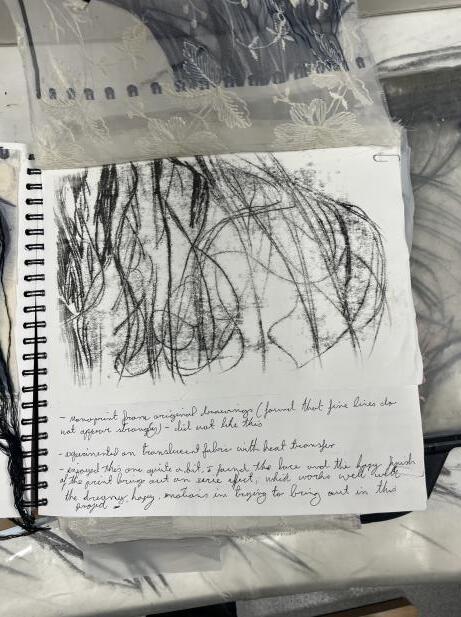 - monoprint from original drawings (found that fine lines do
not appear strongly) - did not like this
- experimented on translucent fabric with heat transfer
- enjoyed this one quite a bit, I found the lace and the hazy finish
of the print brings out an eerie effect, which works well with
the dreamy, hazy, emotions im trying to bring out in this
project